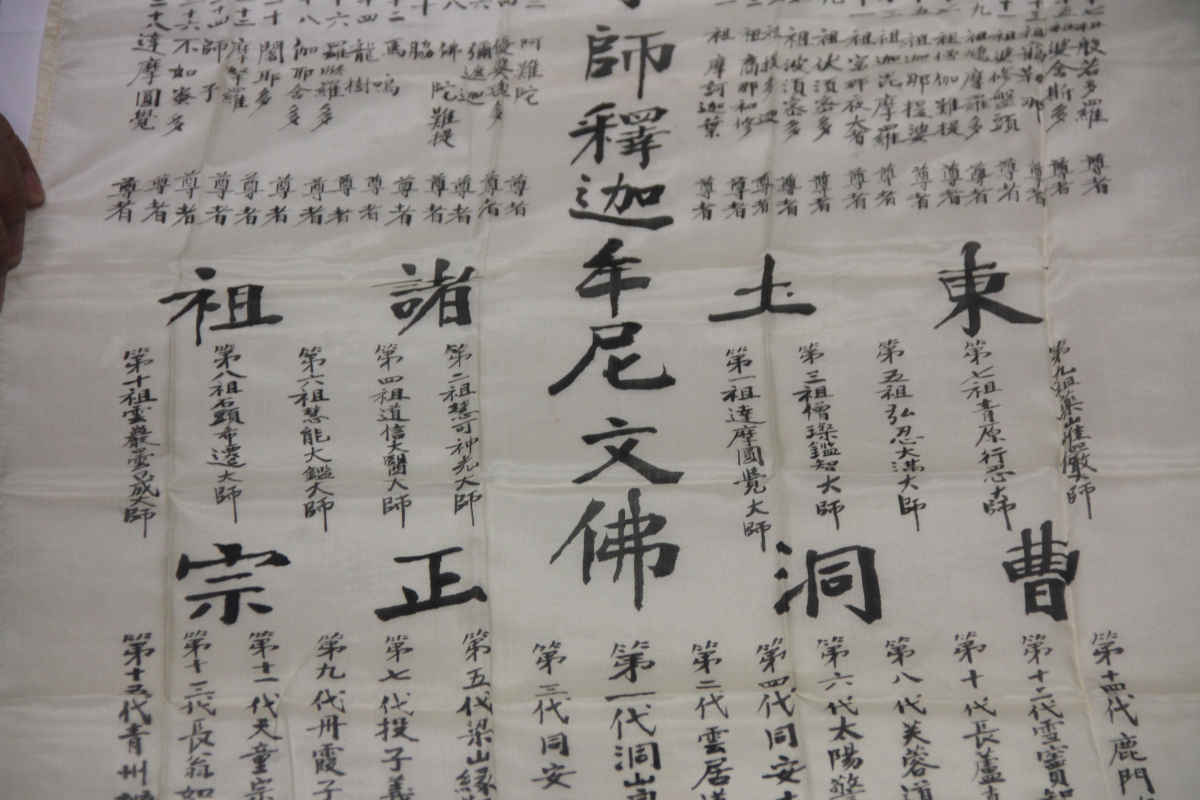 祖般若多羅 尊者
祖婆舍斯多 尊者
祖鶴勒那 尊者
祖婆修盤頭 尊者
祖鳩摩羅多 尊者
祖 伽難提 尊者
祖迦那提婆 尊者
祖迦毘摩羅 尊者
祖富那夜奢 尊者
祖伏須蜜多 尊者
祖波須蜜多 尊者
祖提多迦 尊者
祖商那和修 尊者
祖摩訶迦葉 尊者
師釋迦牟尼文佛
阿難陀 尊者
優婆 多 尊者
彌遮迦 尊者
佛陀難提 尊者
脇 尊者
十二 馬鳴 尊者
十四 龍樹 尊者
十六 羅睺羅多 尊者
十八 伽耶舍多 尊者
二十 闍耶多 尊者
摩拏羅 尊者
師子 尊者
二十六 不如蜜多 尊者
二十八 達摩圓覺 尊者
東土諸祖
第九祖藥山惟儼大師
第七祖青原行思大師
第五祖弘忍大滿大師
第三祖僧璨鑑智大師
第一祖達摩圓覺大師
第二祖慧可神光大師
第四祖道信大醫大師
第六祖慧能大鑑大師
第八祖石頭希遷大師
第十祖雲巖曇晟大師
曹洞正宗
第十四代鹿門
第十二代雪竇智
第十代長蘆
第八代芙蓉道
第六代太陽警
第四代同安
第二代雲居道
第一代洞山
第三代同安
第五代梁山緣
第七代投子義
第九代丹霞子
第十一代天童宗
第十三代長翁如
第十五代青州